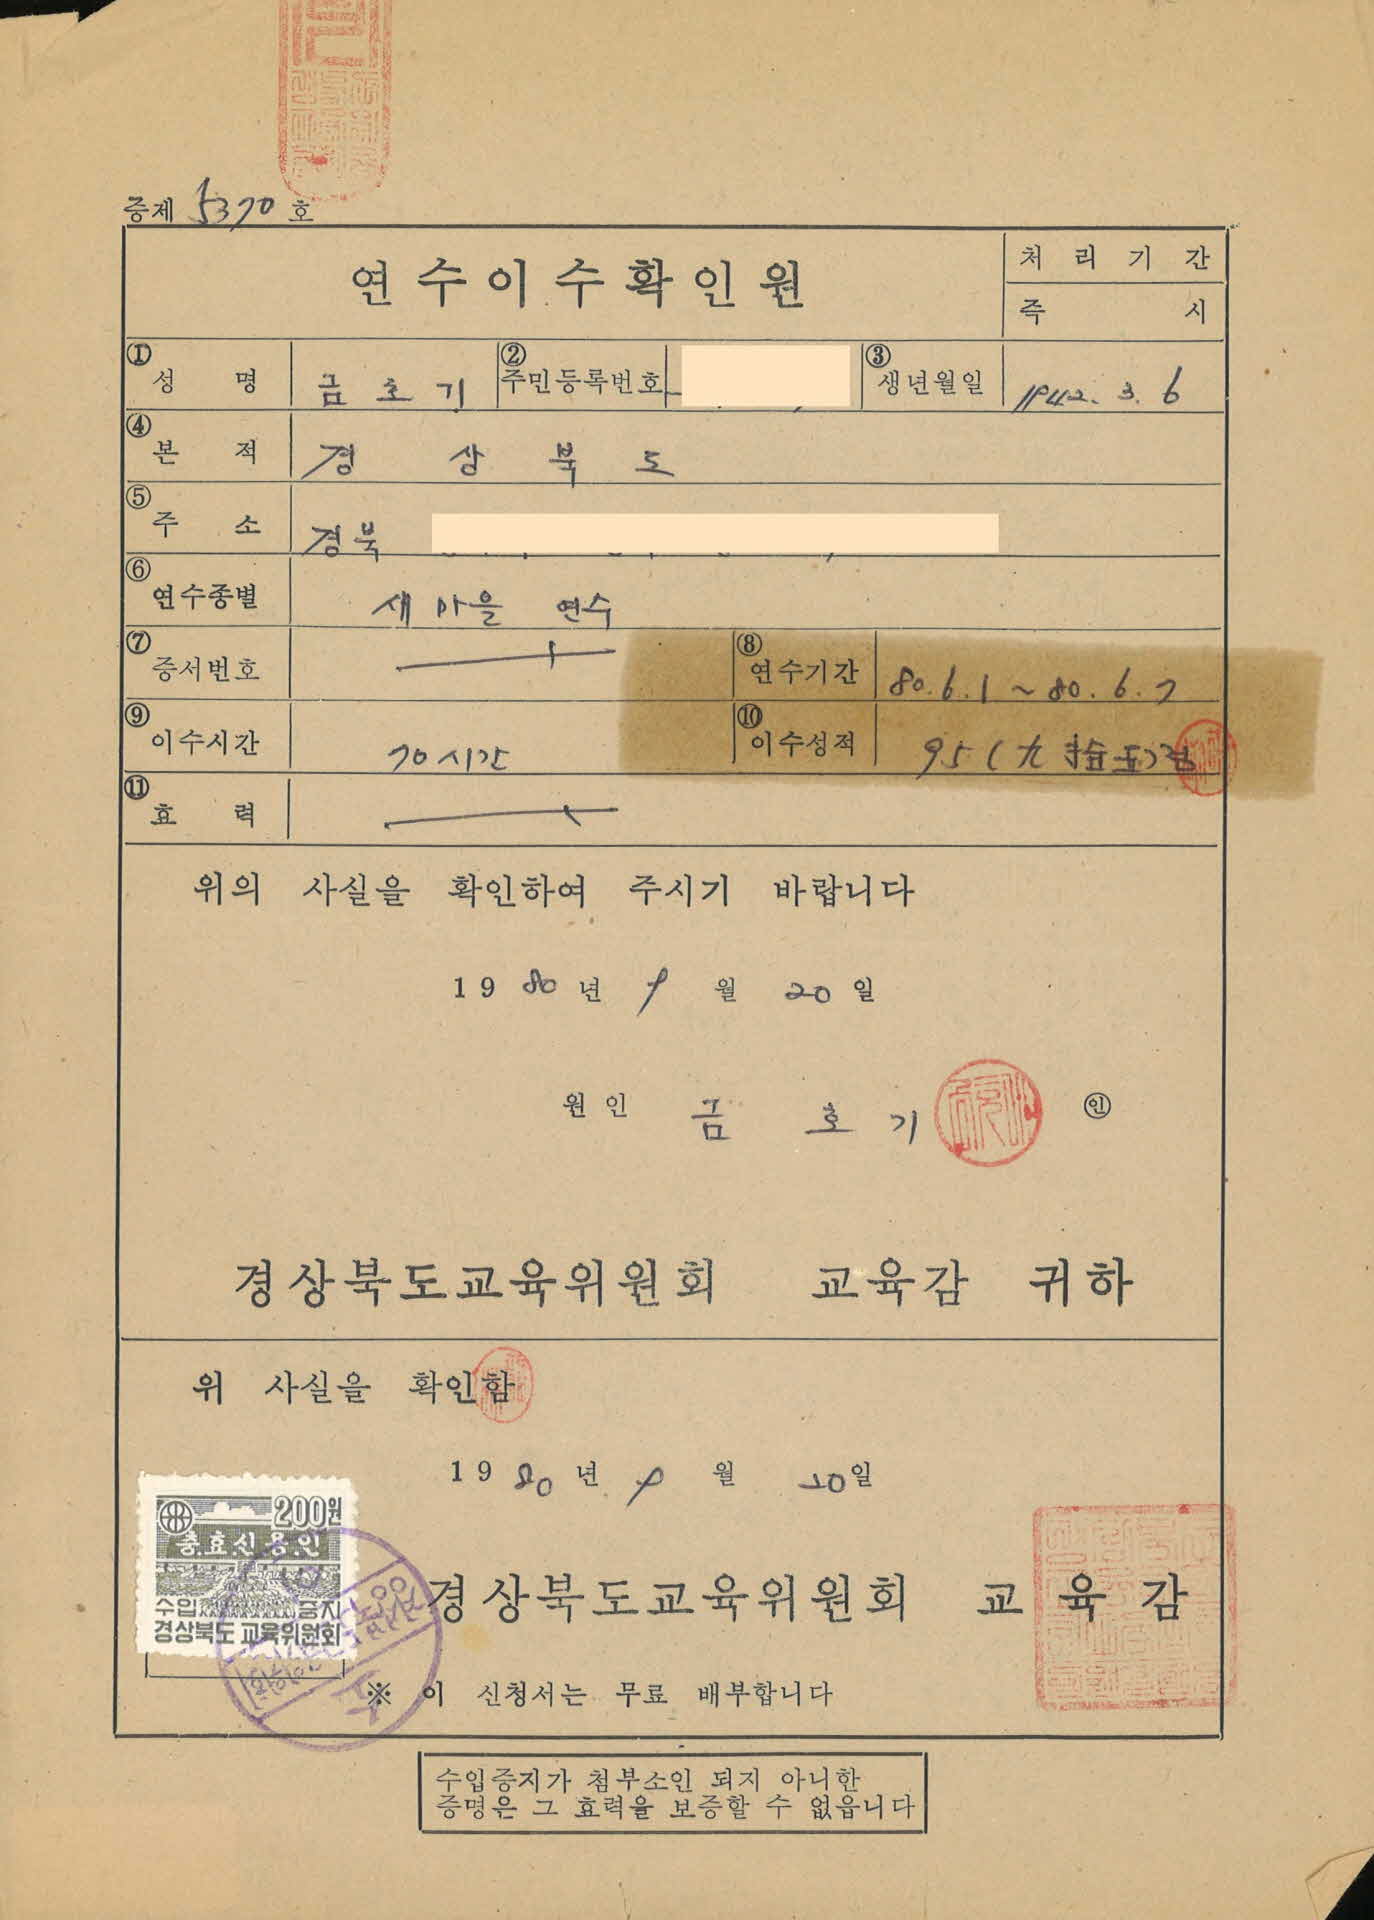 증제 5370 호
연수이수확인원
처리기간
즉시
① 성명 금호기 ② 주민등록번호 ③ 생년월일 1942. 3. 6
④ 본적 경상북도
⑤ 주소 경북
⑥ 연수종별 새마을 연수
⑦ 증서번호 ⑧ 연수기간 80. 6. 1 ~ 80. 6. 7
⑨ 이수시간 70시간 ⑩ 이수성적 95(九拾五)점
⑪ 효력
위의 사실을 확인하여 주시기 바랍니다
1980년 9월 20일
원인 금호기 ㊞
경상북도교육위원회 교육감 귀하
위 사실을 확인함
1980년 9월 20일
200원
충.효.신.용.인
수입증지
경상북도 교육위원회
경상북도교육위원회 교육감
※ 이 신청서는 무료 배부합니다
수입증지가 첨부소인 되지 아니한
증명은 그 효력을 보증할 수 없읍니다